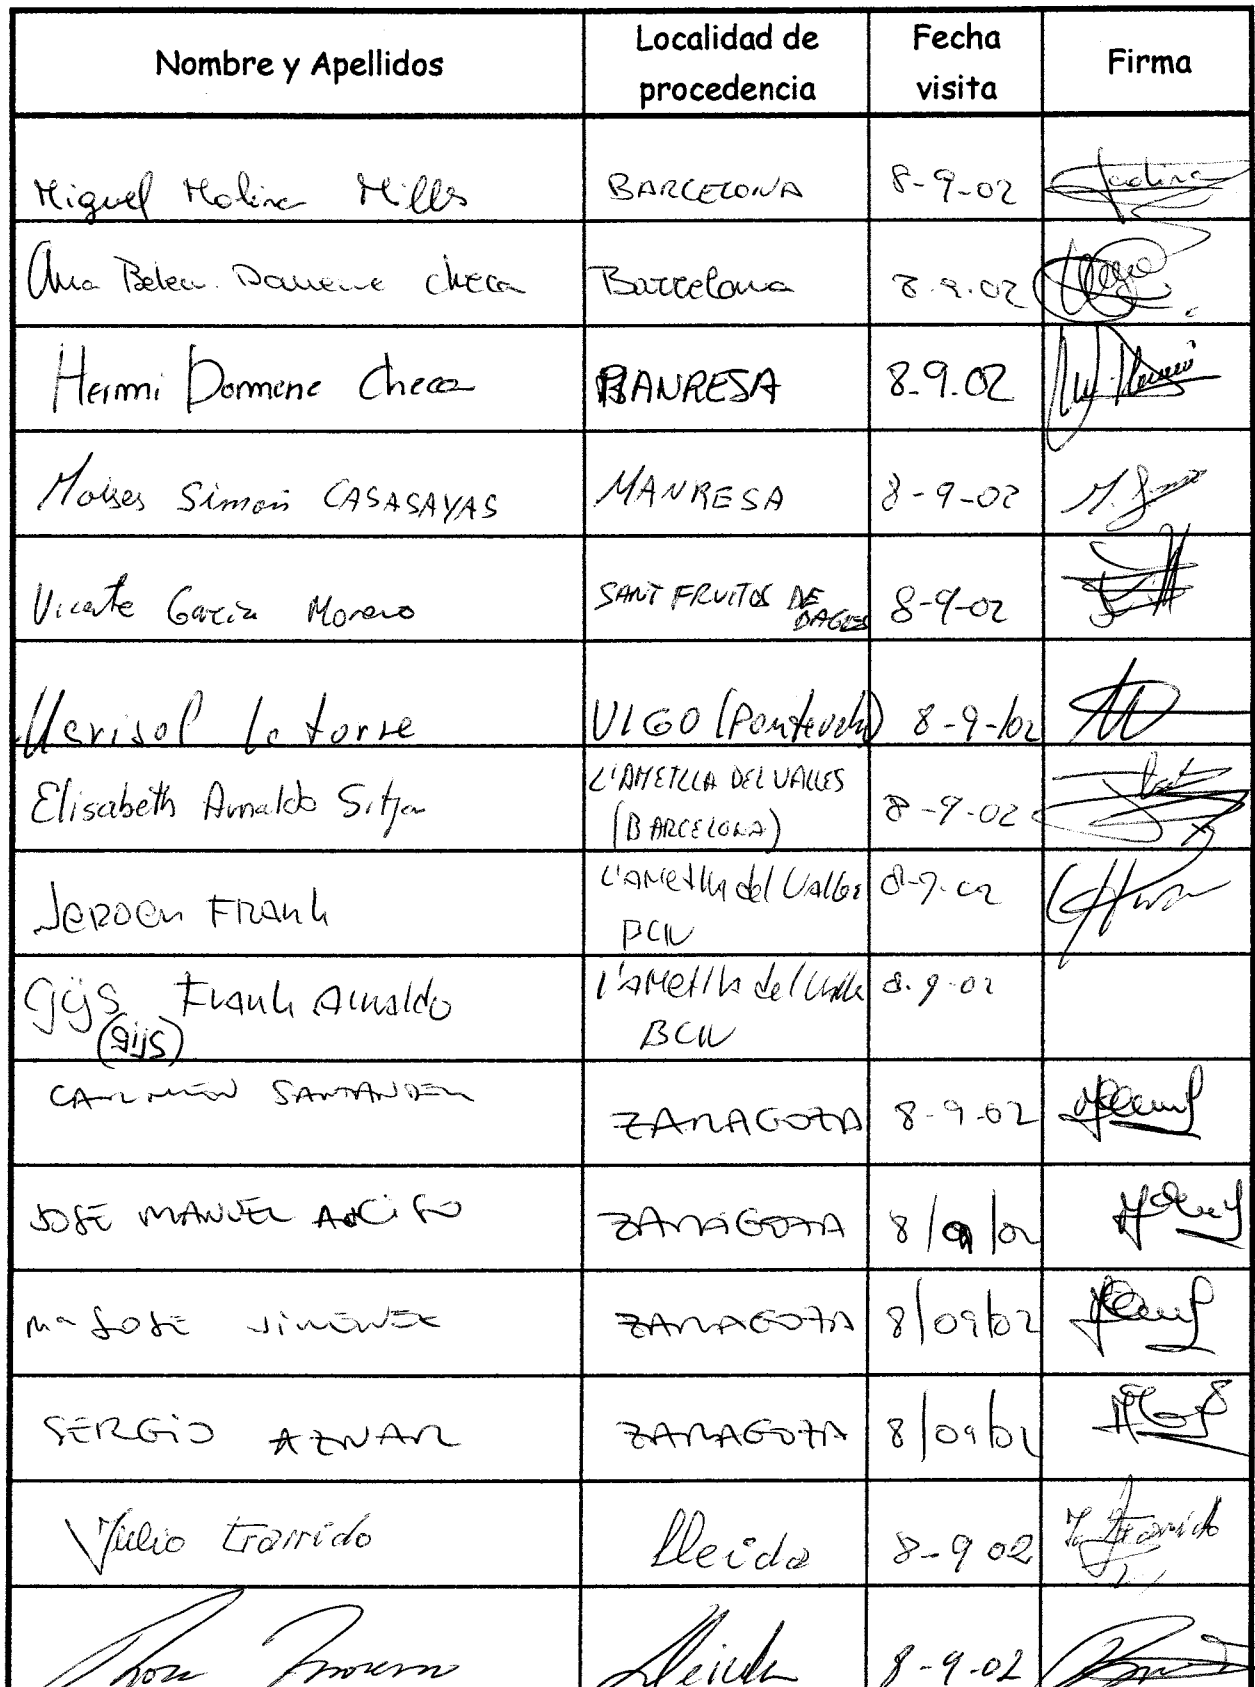 Nombre y Apellidos Localidad de procedencia Fecha visita Firma
Miguel Molina Mills BARCELONA 8-9-02
Ana Belen Domene checa Barcelona 8.9.02
Hermi Domene Checa MANRESA 8.9.02
Moises Simon CASASAYAS MANRESA 8-9-02
Vicente Garcia Moreno SANT FRUITOS DE BAGES 8-9-02
Marisol Latorre VIGO (Pontevedra) 8-9-02
Elisabeth Arnaldo Sitja L'AMETLLA DEL VALLES (BARCELONA) 8-9-02
Jeroen Frank L'AMetlla del Valles BCN 8-9-02
Gijs Frank Arnaldo L'AMetlla del Valles BCN 8-9-02
(gijs)
CARMEN SANTANDER ZARAGOZA 8-9-02
JOSE MANUEL ZARAGOZA 8/09/02
Mª JOSE JIMENEZ ZARAGOZA 8/09/02
SERGIO AZNAR ZARAGOZA 8/09/02
Julio Lleida 8-9 02
Lleida 8-9-02